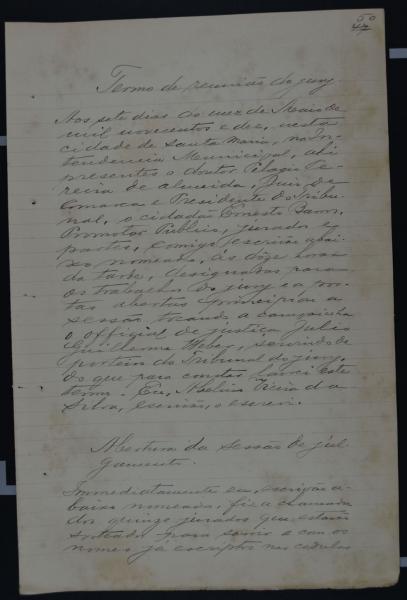 50
47
Termo de reunião do jury.
Aos sete dias do mez de Maio de
mil novecentos e dez, nesta
cidade de Santa Maria, na In-
tendencia Municipal, ahi
presentes o doutor Pelagio Pe-
reira de Almeida, Juiz de
Comarca e Presidente do Tribu-
nal, o cidadão Ernesto
Promotor Publico, jurados e
partes, comigo escrivão abai-
xo nomeado, ás doze horas
da tarde, designadas para
os trabalhos do jury e a por-
tas abertas principiou a
sessão tocando a campainha
o official de justiça Julio
Guilherme Weber, servindo de
porteiro do Tribunal do jury.
Do que para constar lavrei este
termo. Eu, Vieira da
Silva, escrivão, o escrevi.
Abertura da sessão de jul-
gamento.
Immediatamente eu, escrivão a-
baixo nomeado, fiz a chamada
dos quinze jurados que
sorteados para e com os
nomes já escriptos nas cedulas